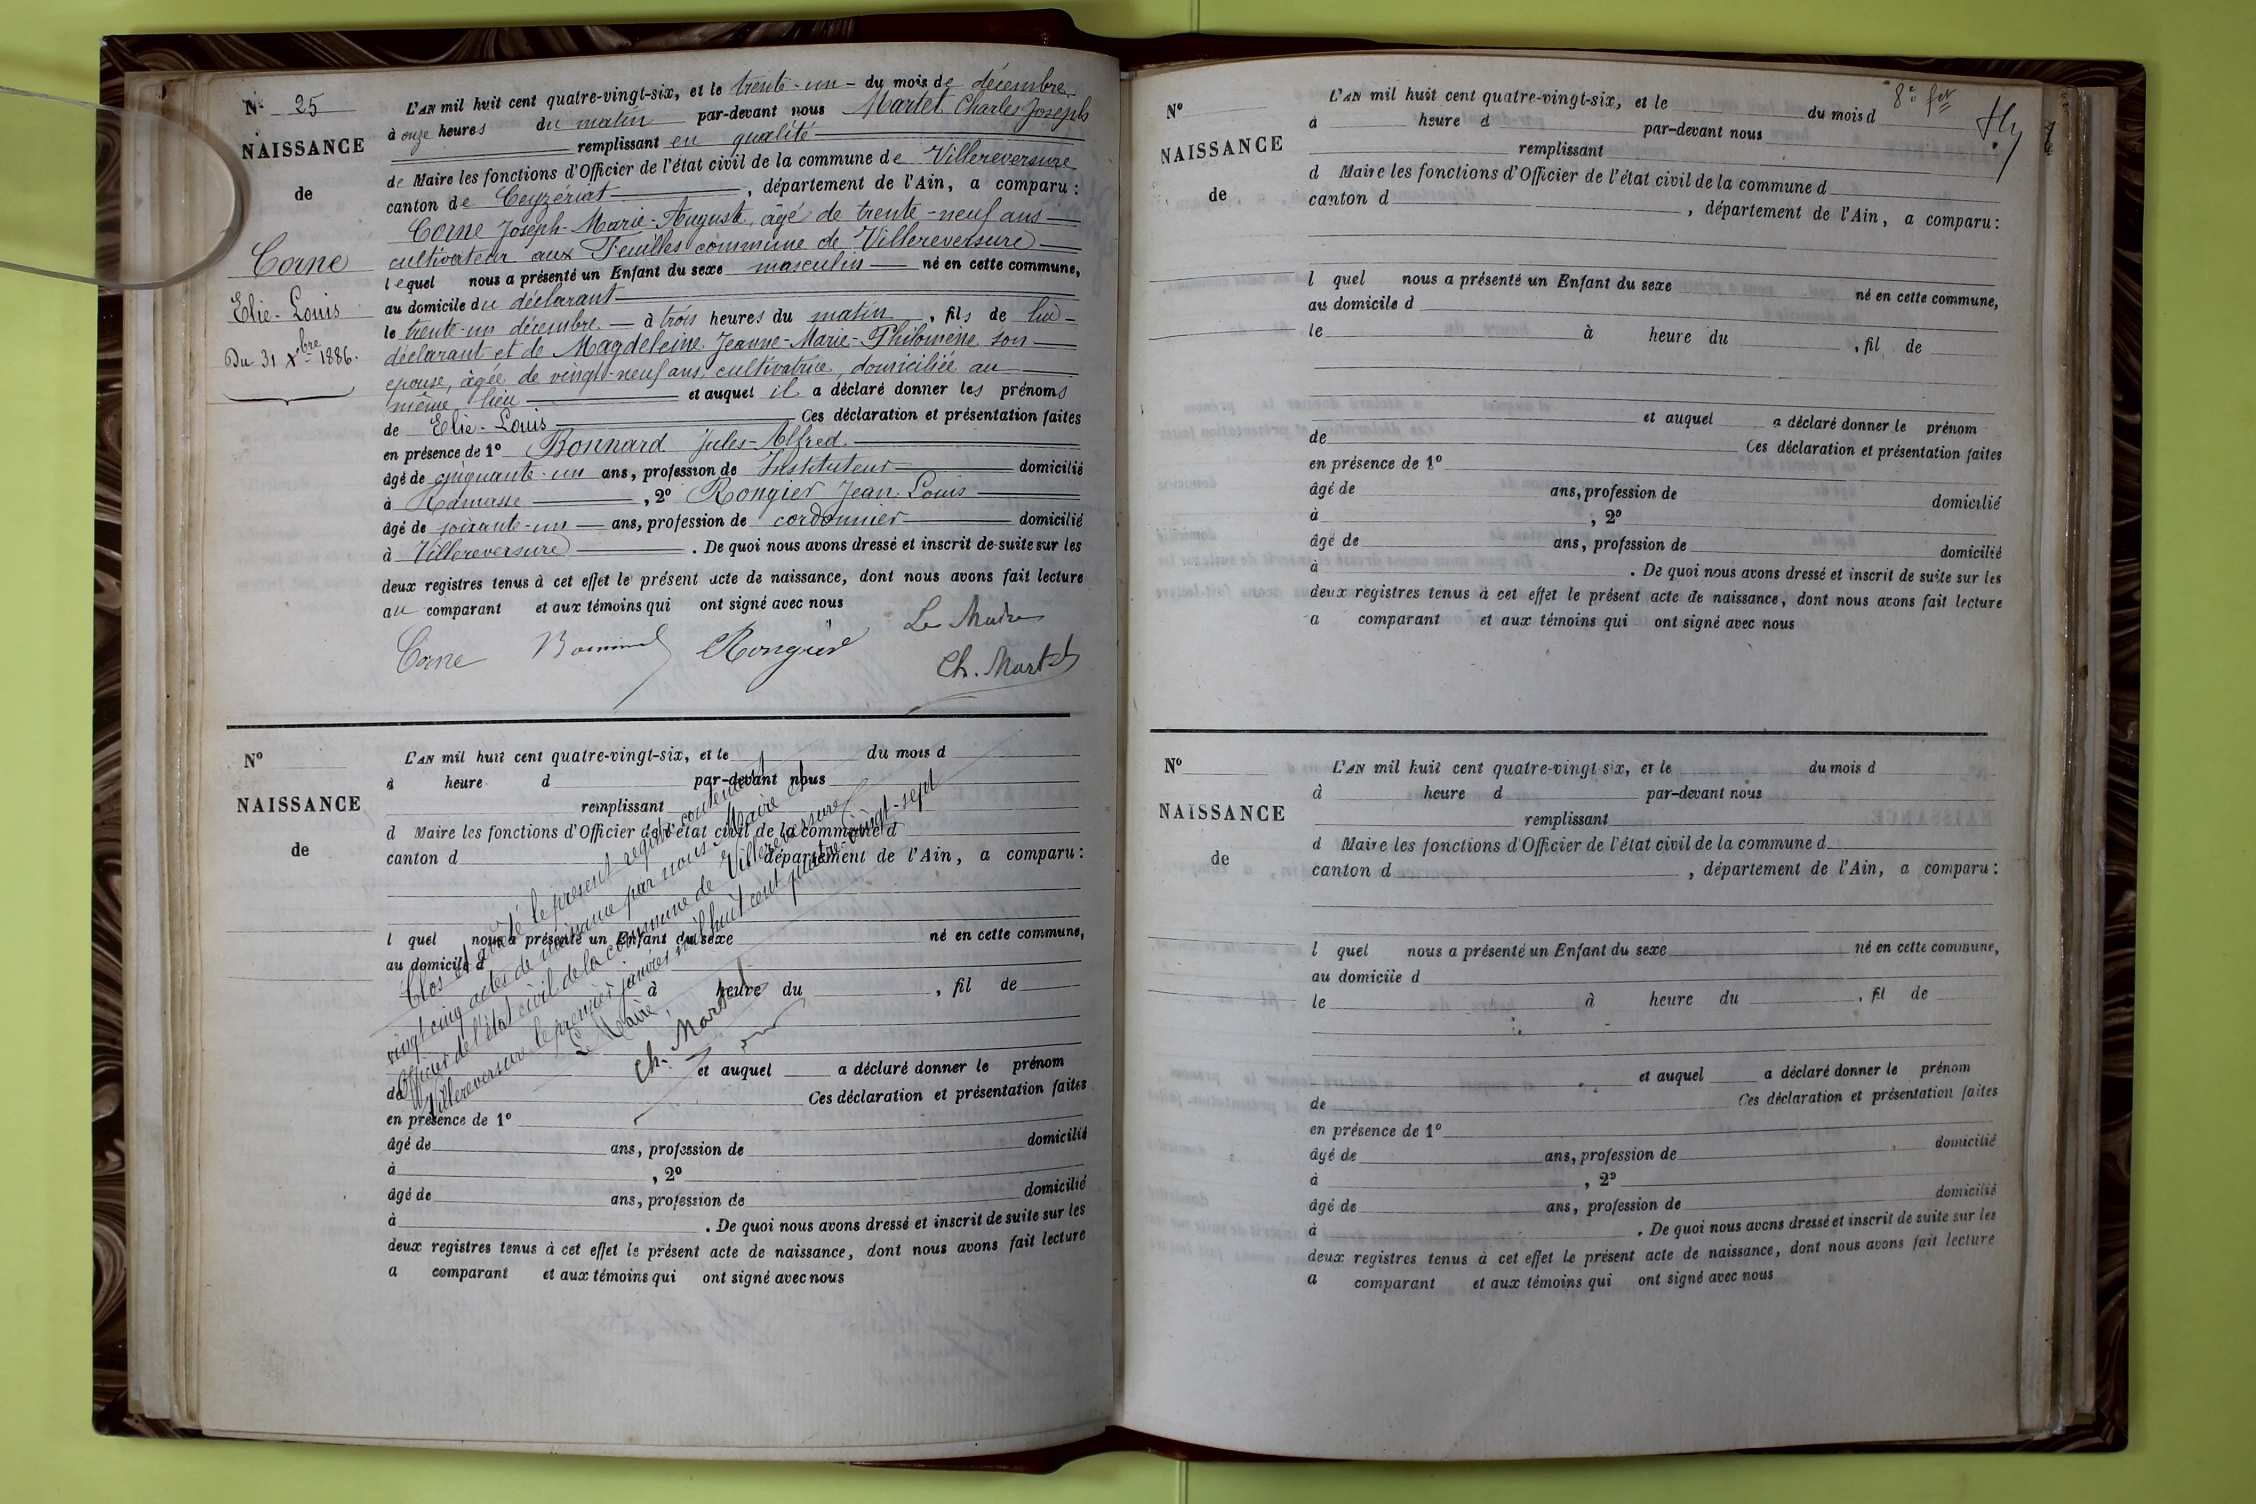 N° 25
NAISSANCE
de
Corne
Elie-Louis
Du 31 Xbre 1886.
L'AN mil huit cent quatre-vingt-six, et le trente-un du mois de décembre
à onze heures du matin par-devant nous Martel Charles Joseph
remplissant en qualité
de Maire les fonctions d'Officier de l'état civil de la commune de Villereversure
canton de Ceyzériat, département de l'Ain, a comparu :
Corne Joseph-Marie-Auguste, âgé de trente-neuf ans
cultivateur aux Feuilles commune de Villereversure
lequel nous a présenté un Enfant du sexe masculin né en cette commune,
au domicile du déclarant
le trente-un décembre à trois heures du matin, fils de lui-
déclarant et de Magdeleine Jeanne-Marie-Philomène son
épouse, âgée de vingt-neuf ans, cultivatrice, domiciliée au
même lieu et auquel il a déclaré donner les prénoms
de Elie-Louis Ces déclaration et présentation faites
en présence de 1° Bonnard Jules-Alfred
âgé de cinquante-un ans, profession de Instituteur domicilié
à Ramasse, 2° Rongier Jean Louis
âgé de soixante-un ans, profession de cordonnier domicilié
à Villereversure. De quoi nous avons dressé et inscrit de suite sur les
deux registres tenus à cet effet le présent acte de naissance, dont nous avons fait lecture
au comparant et aux témoins qui ont signé avec nous
Le Maire
Corne Bonnard Rongier Ch. Martel
N°
NAISSANCE
de
L'AN mil huit cent quatre-vingt-six, et le du mois d
à heure d par-devant nous
remplissant
d Maire les fonctions d'Officier de l'état civil de la commune d
canton d département de l'Ain, a comparu :
l quel nous a présenté un Enfant du sexe né en cette commune,
au domicile d
à heure du , fil de
et auquel a déclaré donner le prénom
de Ces déclaration et présentation faites
en présence de 1°
âgé de ans, profession de domicilié
à , 2°
âgé de ans, profession de domicilié
à . De quoi nous avons dressé et inscrit de suite sur les
deux registres tenus à cet effet le présent acte de naissance, dont nous avons fait lecture
a comparant et aux témoins qui ont signé avec nous
Clos et arrêté le présent registre contenant
vingt cinq actes de naissance par nous Maire et
Officier de l'état civil de la commune de Villereversure
Villereversure le premier janvier mil huit cent quatre-vingt-sept
Le Maire
Ch. Martel
8e fet
N°
NAISSANCE
de
L'AN mil huit cent quatre-vingt-six, et le du mois d
à heure d par-devant nous
remplissant
d Maire les fonctions d'Officier de l'état civil de la commune d
canton d , département de l'Ain, a comparu :
l quel nous a présenté un Enfant du sexe né en cette commune,
au domicile d
le à heure du , fil de
et auquel a déclaré donner le prénom
de Ces déclaration et présentation faites
en présence de 1°
âgé de ans, profession de domicilié
à , 2°
âgé de ans, profession de domicilié
à . De quoi nous avons dressé et inscrit de suite sur les
deux registres tenus à cet effet le présent acte de naissance, dont nous avons fait lecture
a comparant et aux témoins qui ont signé avec nous
N°
NAISSANCE
de
L'AN mil huit cent quatre-vingt six, et le du mois d
à heure d par-devant nous
remplissant
d Maire les fonctions d'Officier de l'état civil de la commune d
canton d , département de l'Ain, a comparu :
l quel nous a présenté un Enfant du sexe né en cette commune,
au domicile d
le à heure du , fil de
et auquel a déclaré donner le prénom
de Ces déclaration et présentation faites
en présence de 1°
âgé de ans, profession de domicilié
à , 2°
âgé de ans, profession de domicilié
à . De quoi nous avons dressé et inscrit de suite sur les
deux registres tenus à cet effet le présent acte de naissance, dont nous avons fait lecture
a comparant et aux témoins qui ont signé avec nous